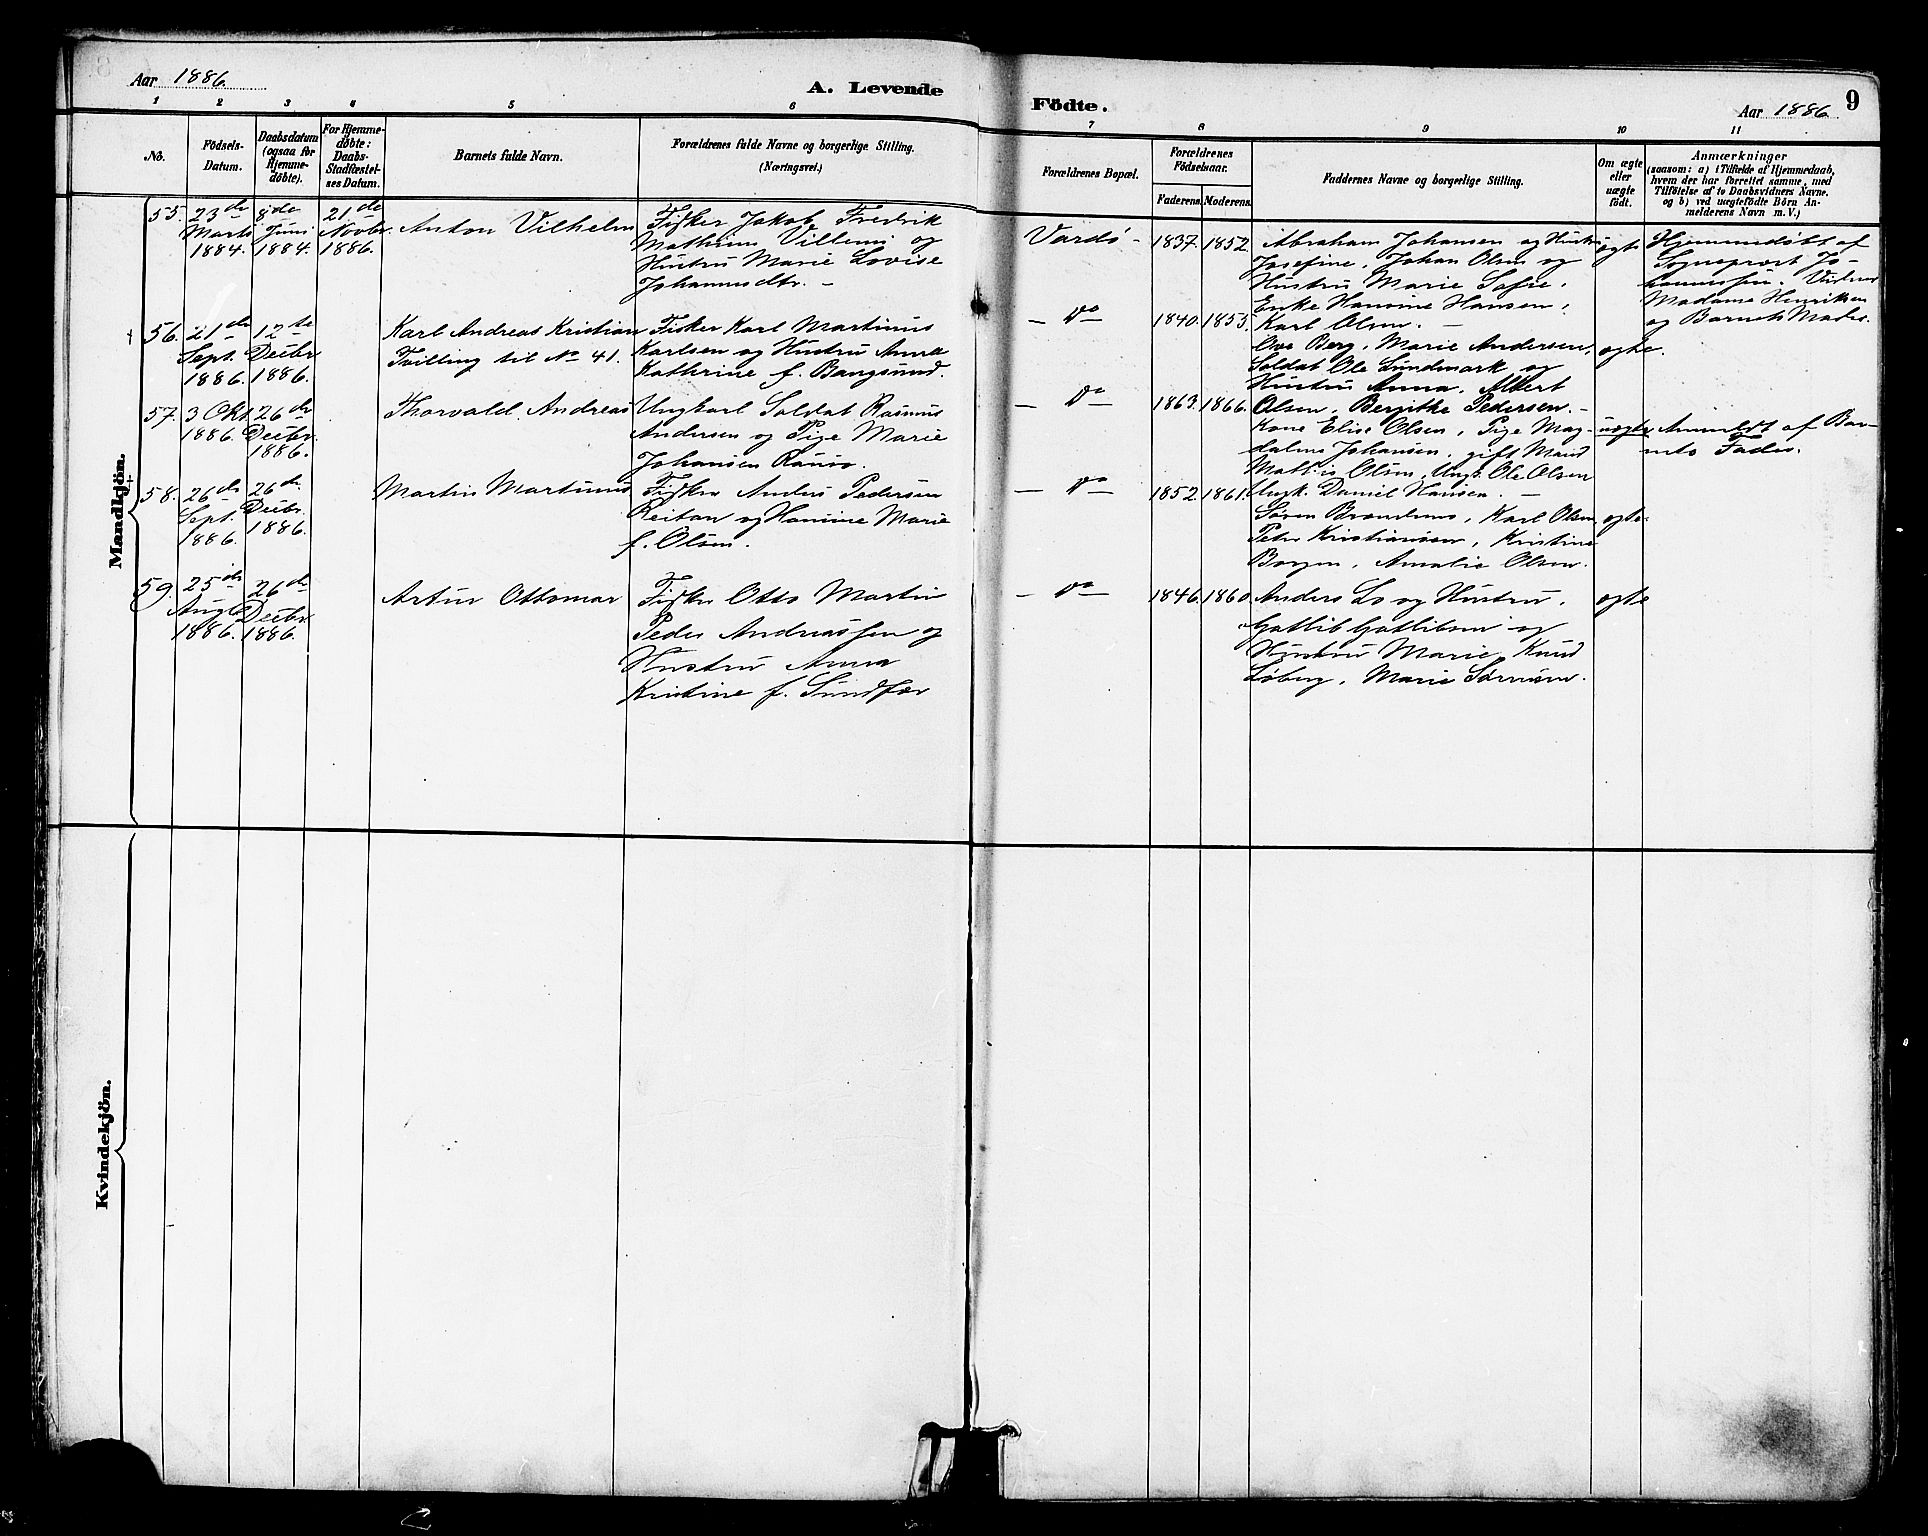 Aar 1886.
A. Levende
Födte.
Aar 1886.
9
1 2 3 4 5 6 7 8 9 10 11
No.
Födsels-
Datum.
Daabsdatum
(ogsaa for
Hjemme-
døbte).
For Hjemme-
døbte:
Daabs-
Stadfæstel-
ses Datum.
Barnets fulde Navn.
Forældrenes fulde Navne og borgerlige Stilling.
(Næringsvei.)
Forældrenes Bopæl.
Forældrenes
Födselsaar.
Faderens. Moderens.
Faddernes Navne og borgerlige Stilling.
Om ægte
eller
uægte
födt.
Anmærkninger
(saasom: a) i Tilfælde af Hjemmedaab,
hvem der har forrettet samme, med
Tilföielse af to Daabsvidners Navne.
og b) ved uægtefödte Börn An-
melderens Navn m. V.)
Mandkjön.
55.
23de
Marts
1884.
8de
Juni
1884.
21de
Novbr.
1886.
Anton Vilhelm
Fisker Jakob Fredrik
Mathias Villemi og
Hustru Marie Lovise
Johannesdtr. -
Vardö -
1837. 1852.
Abraham Johansen og Hustru
Josefine, Johan Olsen og
Hustru Marie Sofie,
Enke Hansine Hansen,
Karl Olsen. -
ægte
Hjemmedøbt af
Sognepræst Jo-
hannessen. Vidner
Madame Henriksen
og Barnets Moder.
56.
21de
Sept.
1886.
12te
Decbr.
1886.
Karl Andreas Kristian
Tvilling til No 41.
Fisker Karl Martinus
Karlsen og Hustru Anna
Kathrine f. Bangsund.
- do -
1840. 1853.
Ove Berg, Marie Andersen,
Soldat Ole Sundmark og
Hustru Anna, Albert
Olsen, Bergithe Pedersen. -
ægte.
57.
3 Okt.
1886.
26de
Decbr.
1886.
Thorvald Andreas
Ungkarl Soldat Rasmus
Andersen og Pige Marie
Johansen
- do -
1863. 1866.
Kone Elise Olsen, Pige Mag-
dalena Johansen, gift Mand
Mathis Olsen, Ungk. Ole Olsen
Ungk. Daniel Hansen. -
uægte
Anmeldt af Bar-
nets Fader.
58.
26de
Sept.
1886.
26de
Decbr.
1886.
Martin Martinus
Fisker Anders Pedersen
Reitan og Hansine Marie
f. Olsen.
- do -
1852. 1861.
Søren Karl Olsen,
Peter Kristiansen, Kristine
Borgen, Amalie Olsen.
ægte.
59.
25de
Aug.
1886.
26de
Decbr.
1886.
Artur Ottomar
Fisker Otto Martin
Peder Andreassen og
Hustru Anna
Kristine f. Sundfær
- do -
1846. 1860.
Anders Lo og Hustru,
Gotlib Gotlibsen og
Hustru Marie, Knud
Løberg, Marie Sørensen.
ægte
Kvindekjön.